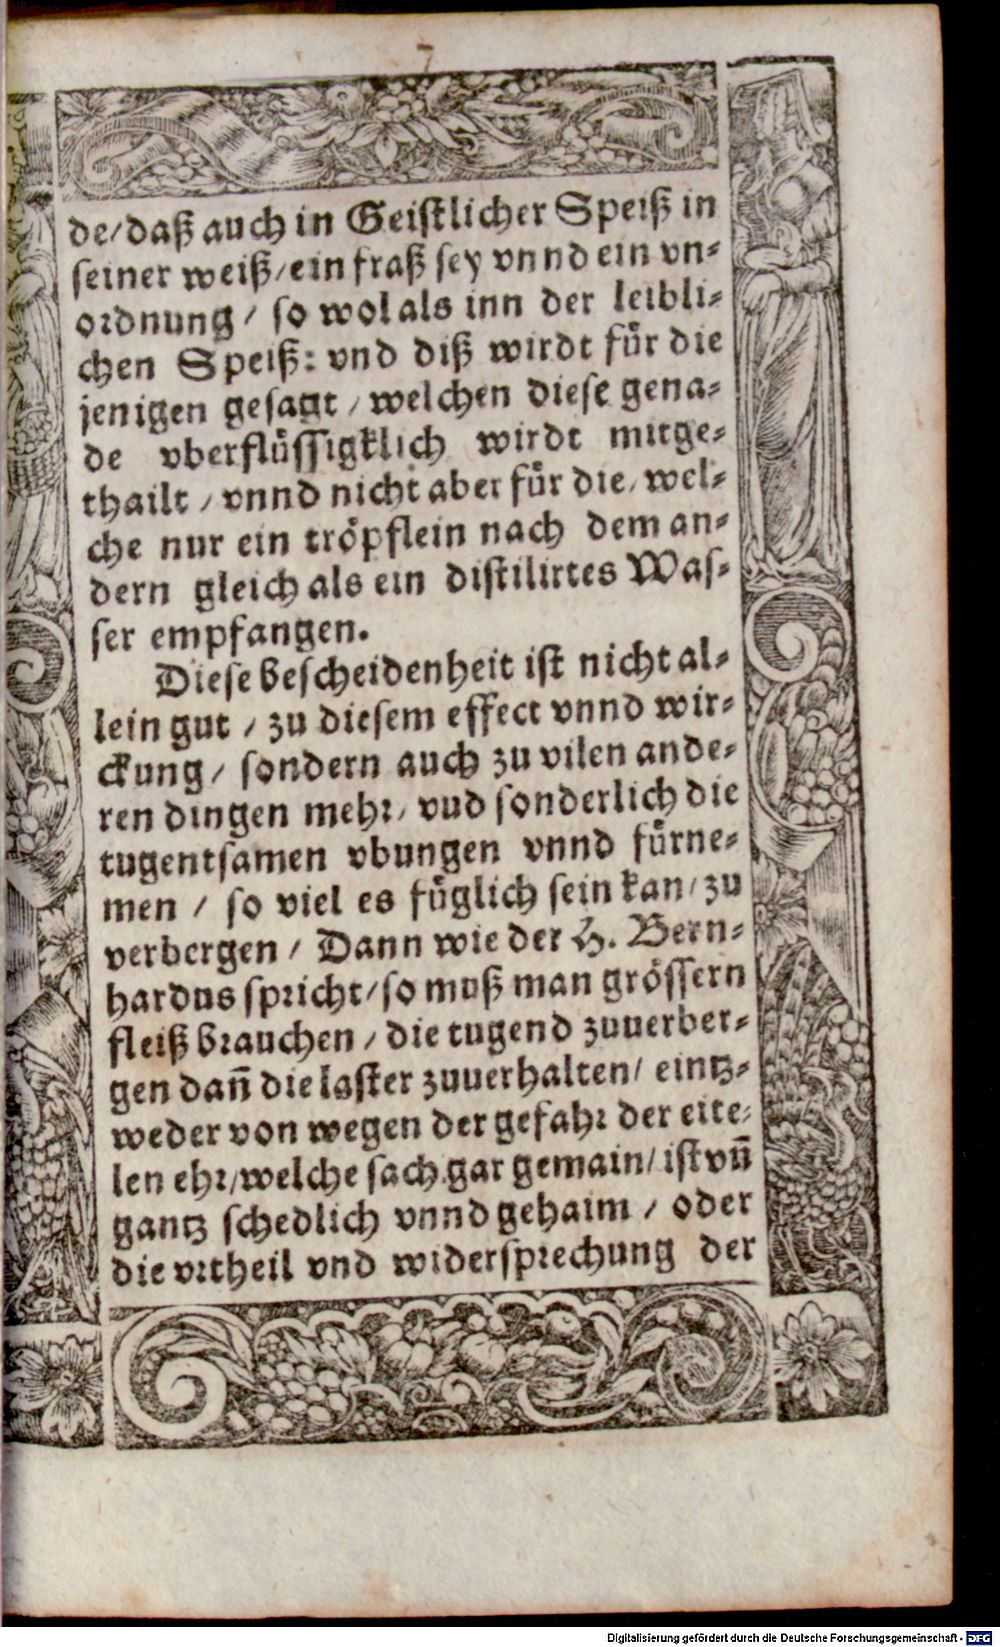 7
de/daß auch in Geistlicher Speiß in
seiner weiß/ein fraß sey vnnd ein vn-
ordnung / so wol als inn der leibli-
chen Speiß: vnd diß wirdt für die
jenigen gesagt / welchen diese gena-
de vberflüssigklich wirdt mitge-
thailt / vnnd nicht aber für die/ wel-
che nur ein tröpflein nach dem an-
dern gleich als ein distilirtes Was-
ser empfangen.
Diese bescheidenheit ist nicht al-
lein gut / zu diesem effect vnnd wir-
ckung / sondern auch zu vilen ande-
ren dingen mehr/ vud sonderlich die
tugentsamen vbungen vnnd fürne-
men / so viel es füglich sein kan/ zu
verbergen / Dann wie der H. Bern-
hardus spricht/so muß man grössern
fleiß brauchen / die tugend zuuerber-
gen dan̄ die laster zuuerhalten/ eintz-
weder von wegen der gefahr der eite-
len ehr/welche sach gar gemain/ ist vn̄
gantz schedlich vnnd gehaim / oder
die vrtheil vnd widersprechung der
Digitalisierung gefördert durch die Deutsche Forschungsgemeinschaft - DFG